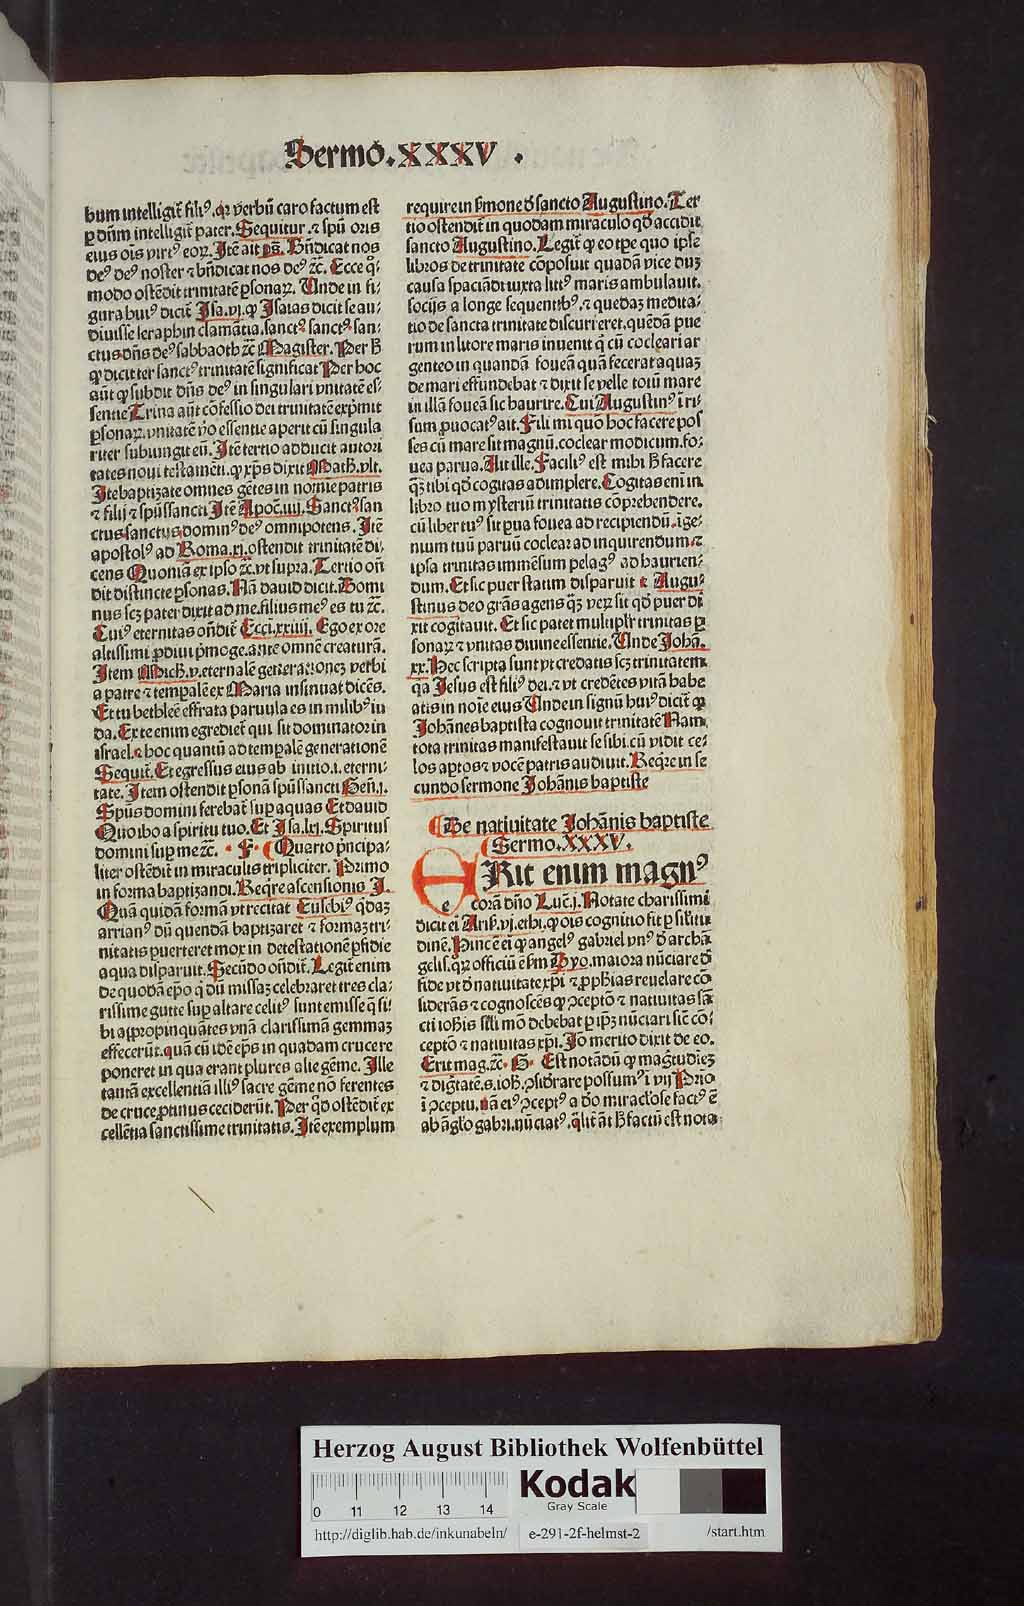 Sermo.XXXV.
bum intelligit̄ filiꝰ. qꝛ verbū caro factum est
ꝑ dn̄m intelligit̄ pater. Sequitur. ⁊ spū oris
eius oīs virtꝰ eoꝝ. Itē ait pš. Bn̄dicat nos
deꝰ deꝰ noster ⁊ bn̄dicat nos deꝰ ⁊c̄. Ecce qͦ
modo ostēdit trinitatē ꝑsonaꝝ. Unde in fi-
gura huiꝰ dicit̄ Isa.vj. ꝙ Isaias dicit se au-
diuisse seraphin clamātia. sanctꝰ sanctꝰ san-
ctus dn̄s deꝰ sabaoth ⁊c̄ Magister. Per h̄
ꝙ dicit ter sanctꝰ trinitatē significat Per hoc
aūt ꝙ subdit dn̄s deꝰ in singulari vnitatē es-
sentie Trina aūt cōfessio dei trinitatē exp̄mit
ꝑsonaꝝ. vnitatē ꝟo essentie aperit cū singula
riter subiungit eū. Itē tertio adducit autori
tates noui testamēti. ꝙ xp̄s dixit Math.vlt.
Ite baptizate omnes gētes in nomie patris
⁊ filij ⁊ spūssancti Itē Apoc.iiij. Sanctꝰ san
ctus sanctus dominꝰ deꝰ omnipotens. Itē
apostolꝰ ad Roma.xj. ostendit trinitatē di-
cens Quoniā ex ipso ⁊c̄. vt supra. Tertio on̄
dit distincte ꝑsonas. Nā dauid dicit. Domi
nus scꝫ pater dixit ad me. filius meꝰ es tu ⁊c̄.
Cuiꝰ eternitas on̄dit̄ Ecci.xxiiij. Ego ex ore
altissimi prodiui p̄moge. ante omnē creaturā.
Item Mich.v. eternalē generationeꝫ verbi
a patre ⁊ temꝑalē ex Maria insinuat dicēs.
Et tu bethleē effrata paruula es in milibꝰ iu
da. Ex te enim egrediet̄ qui sit dominator in
israel. ⁊ hoc quantū ad temꝑalē generationē
Sequit̄. Et egressus eius ab initio. i. eterni-
tate. Item ostendit ꝑsonā spūssancti Gen̄.j.
Spūs domini ferebat̄ suꝑ aquas Et dauid
Quo ibo a spiritu tuo. Et Isa.lxj. Spiritus
domini suꝑ me ⁊c̄. F. Quarto p̄ncipa-
liter ostēdit̄ in miraculis tripliciter. Primo
in forma baptizandi. Reqͥre ascensionis I.
Quā quidā formā vt recitat Eusebiꝰ qͥdaꝫ
arrianꝰ dū quendā baptizaret ⁊ formaꝫ tri-
nitatis ꝑuerteret mox in detestationē ꝑfidie
aqua disparuit. Secūdo on̄dit̄. Legit̄ enim
de quodā ep̄o ꝙ dū missaꝫ celebraret tres cla-
rissime gutte suꝑ altare celitꝰ sunt emisse q̄ si-
bi appropinquātes vnā clarissimā gemmaꝫ
effecerūt. quā cū idē ep̄s in quadam crucere
poneret in qua erant plures alie gēme. Ille
tantā excellentiā illiꝰ sacre gēme nō ferentes
de cruce ꝓtinus ceciderūt. Per qͦd ostēdit̄ ex
cellētia sanctissime trinitatis. Itē exemplum
require in ẜmone de sancto Augustino. Ter
tio ostendit̄ in quodam miraculo qd̄ accidit
sancto Augustino. Legit̄ ꝙ eo tꝑe quo ipse
libros de trinitate cōposuit quadā vice duꝫ
causa spaciādi iuxta littꝰ maris ambulauit.
socijs a longe sequentibꝰ. ⁊ quedaꝫ medita-
tio de sancta trinitate discurreret. quēdā pue
rum in litore maris inuenit q̄ cū cocleari ar
genteo in quandā foueā quā fecerat aquaꝫ
de mari effundebat ⁊ dixit se velle totū mare
in illā foueā sic haurire. Cui Augustinꝰ ī ri-
sum ꝓuocatꝰ ait. Fili mi quō hoc facere pos
ses cū mare sit magnū. coclear modicum. fo-
uea parua. At ille. Faciliꝰ est mihi h̄ facere
qͣꝫ tibi qd̄ cogitas adimplere. Cogitas eni in
libro tuo mysteriū trinitatis cōprehendere.
cū liber tuꝰ sit ꝑua fouea ad recipiendū. ige-
nium tuū paruū coclear ad inquirendum. ⁊
ipsa trinitas immēsum pelagꝰ ad haurien-
dum. Et sic puer statim disparuit ⁊ Augu-
stinus deo grās agens qͣꝫ veꝝ sit qd̄ puer di
xit cogitauit. Et sic patet multiplr̄ trinitas ꝑ
sonaꝝ ⁊ vnitas diuine essentie. Unde Johā.
xx. Hec scripta sunt vt credatis scꝫ trinitatem
qa Jesus est filiꝰ dei. ⁊ vt credētes vitā habe
atis in noīe eius Unde in signū huiꝰ dicit̄ ꝙ
Johānes baptista cognouit trinitatē Nam
tota trinitas manifestauit se sibi. cū vidit ce-
los aꝑtos ⁊ vocē patris audiuit. Reqͥre in se
cundo sermone Johānis baptiste
De natiuitate Johānis baptiste
Sermo.XXXV.
ERit enim magnꝰ
corā dn̄o Luc̄.j. Notate charissimi
dicit ei Arist.vj. ethi. ꝙ ois cognitio fit ꝑ sil'itu
dinē. Hinc ē ei ꝙ angelꝰ gabriel vnꝰ d̄ archā
gelis. qͦꝝ officiū ē ẜm Hyo. maiora nūciare d̄
fide vt d̄ natiuitate xp̄i ⁊ ꝓph̄ias reuelare cō
siderās ⁊ cognoscēs ꝙ ꝯceptō ⁊ natiuitas sā
cti ioh̄is sil'i mō debebat ꝑ ip̄ꝫ nūciari sic̄ cō-
ceptō ⁊ natiuitas xp̄i. Jō merito dixit de eo.
Erit mag. ⁊c̄. G. Est notādū ꝙ magͥtudieꝫ
⁊ digͥtatē. s. ioh̄. ꝯsid̄rare possumꝰ ī vij Prīo
ī ꝯceptu. nā eiꝰ ꝯceptꝰ a dō miracl'ose factꝰ ē
ab āgl'o gabri. nūciatꝰ. qͥlit̄ āt h̄ factū est nota
Herzog August Bibliothek Wolfenbüttel
Kodak
Gray Scale
0 11 12 13 14
http://diglib.hab.de/inkunabeln/ e-291-2f-helmst-2 /start.htm